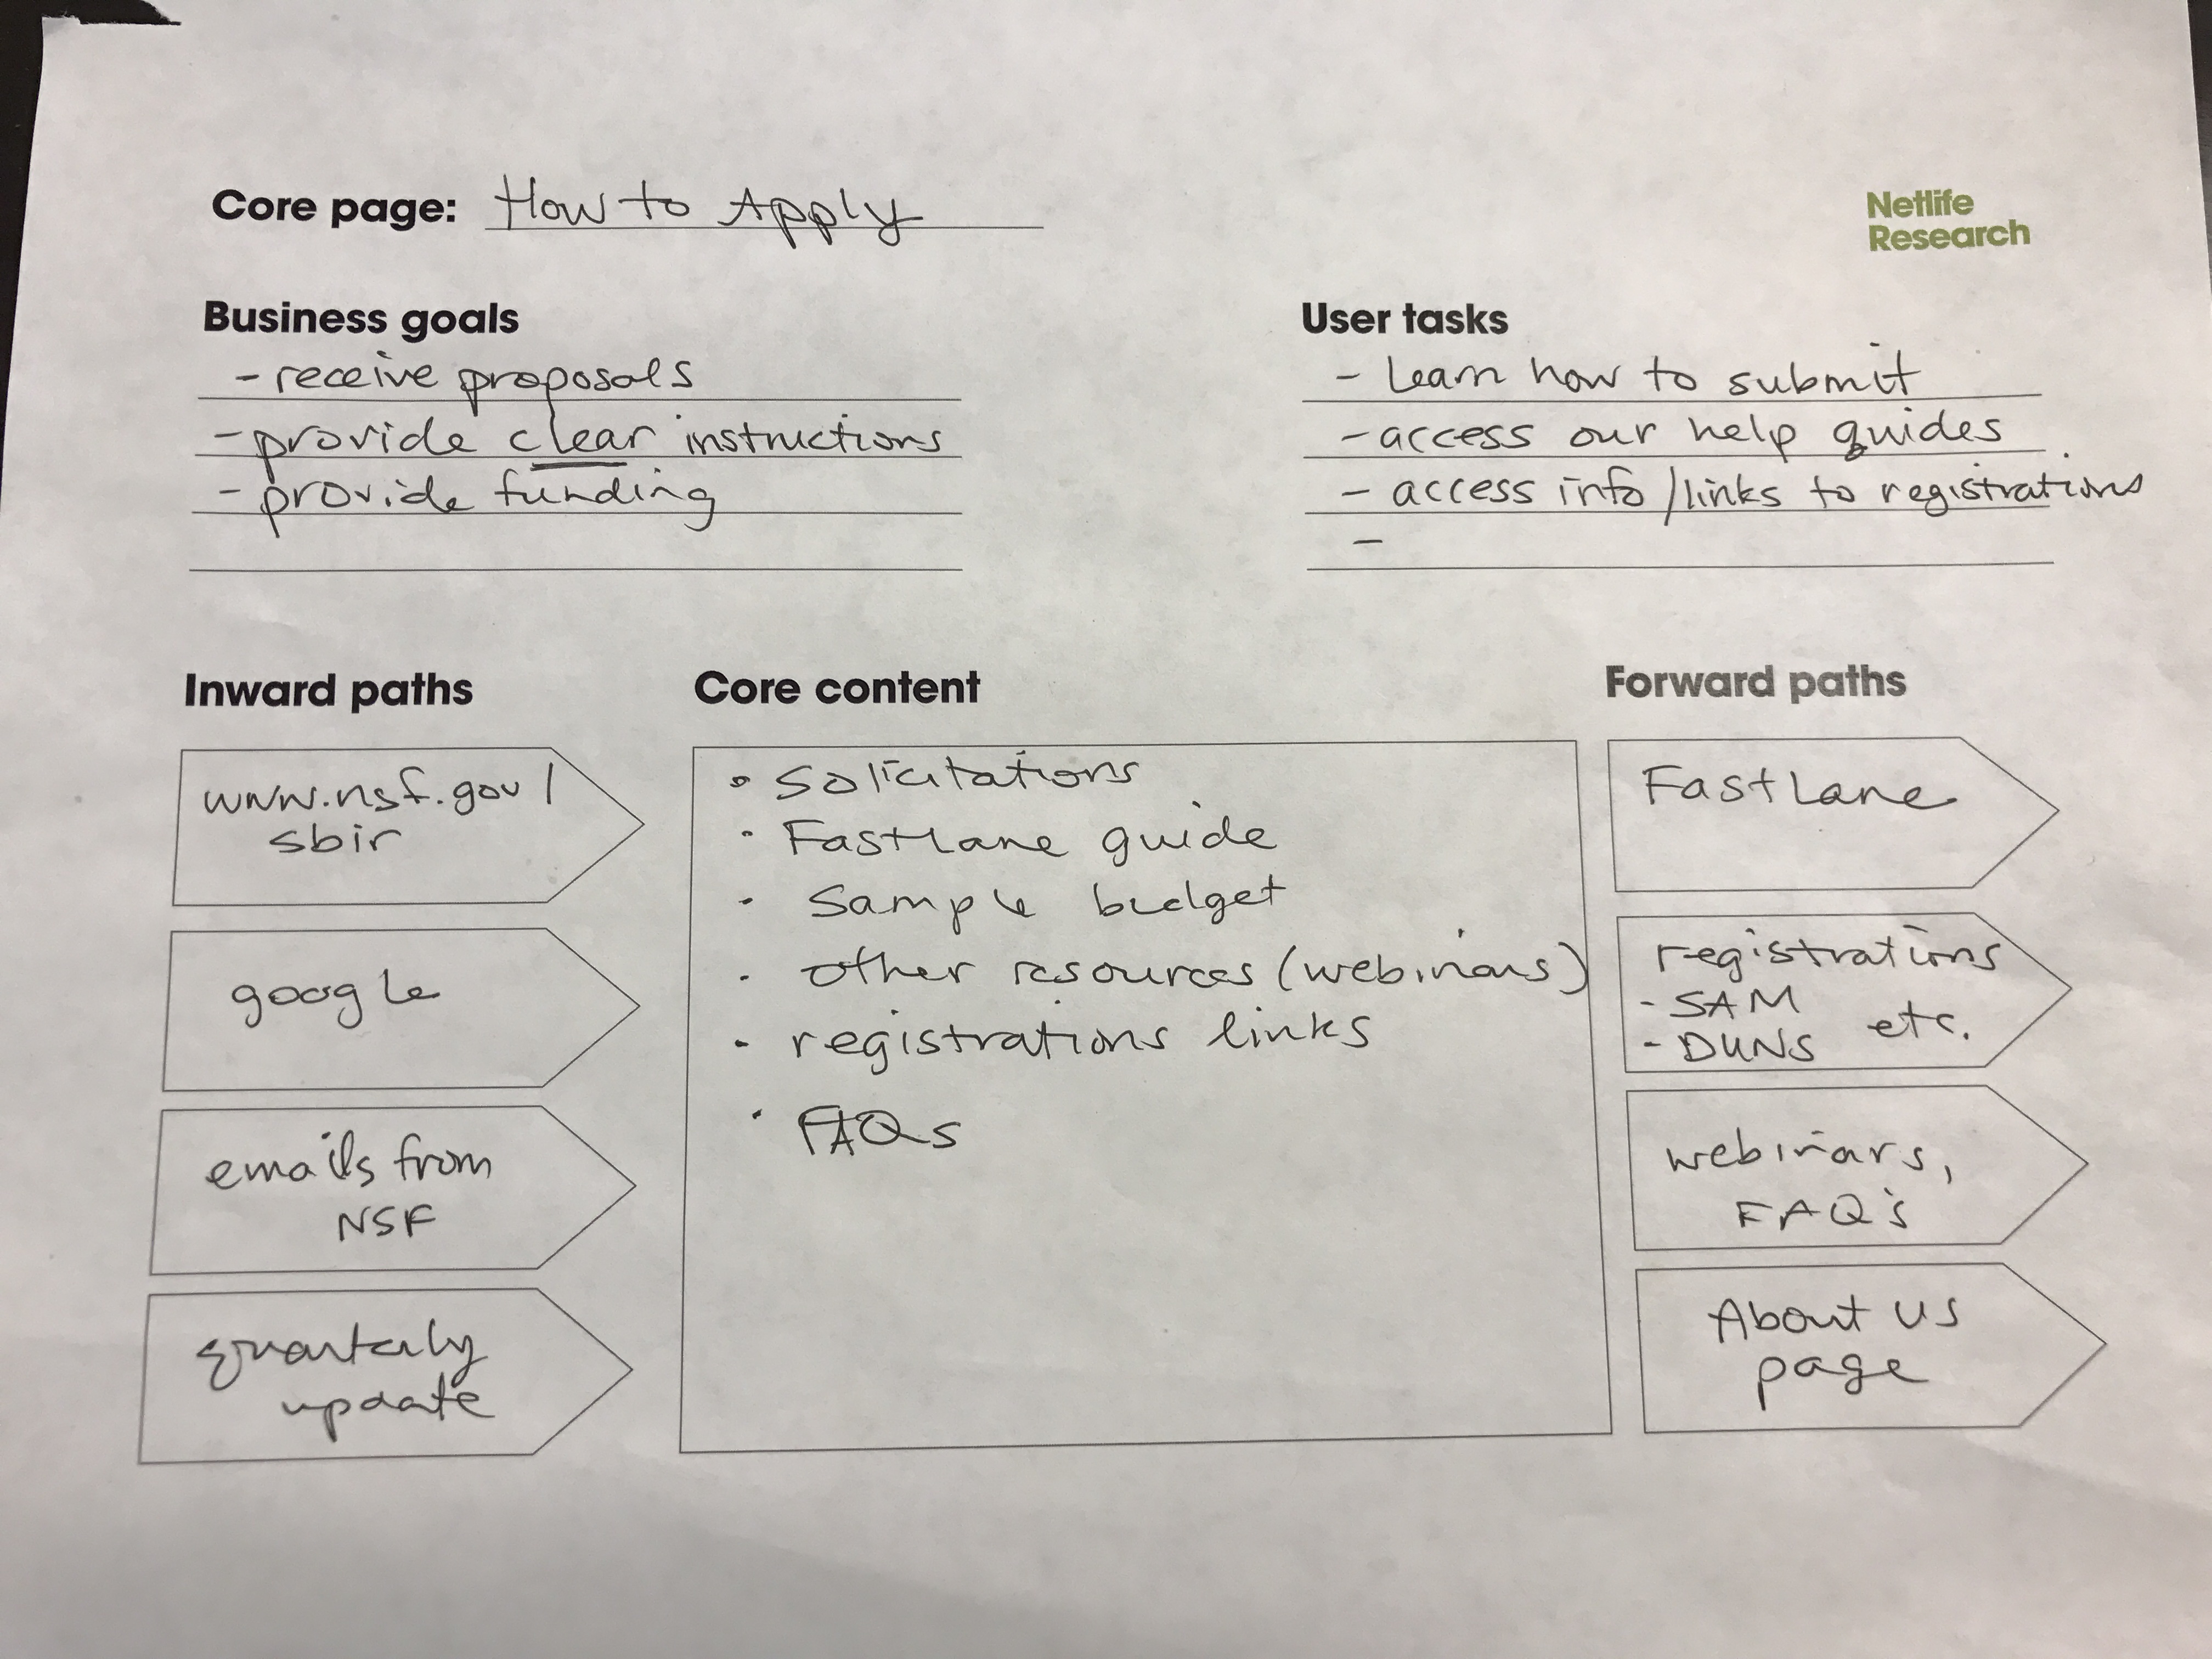 Core page: How to Apply
Netlife
Research
Business goals
- receive proposals
- provide clear instructions
- provide funding
User tasks
- Learn how to submit
- access our help guides
- access info/links to registrations
-
Inward paths
www.nsf.gov/
sbir
google
emails from
NSF
quarterly
update
Core content
• Solicitations
• Fastlane guide
• Sample budget
• other resources (webinars)
• registrations links
• FAQs
Forward paths
FastLane
registrations
- SAM
- DUNS etc.
webinars,
FAQ's
About us
page